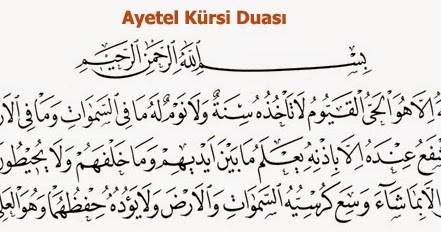 Ayetel Kürsi Duası
بِسْمِ اللهِ الرَّحْمٰنِ الرَّحِيمِ
اِلَّا هُوَ الْحَىُّ الْقَيُّومُ لَا تَأْخُذُهُ سِنَةٌ وَلَا نَوْمٌ لَهُ مَا فِى السَّمٰوَاتِ وَمَا فِى الْاَر
فَعُ عِنْدَهُ اِلَّا بِاِذْنِهِ يَعْلَمُ مَا بَيْنَ اَيْدِيهِمْ وَمَا خَلْفَهُمْ وَلَا يُحِيطُونَ
اِلَّا بِمَا شَاءَ وَسِعَ كُرْسِيُّهُ السَّمٰوَاتِ وَالْاَرْضَ وَلَا يَؤُدُهُ حِفْظُهُمَا وَهُوَ الْعَلِىُّ